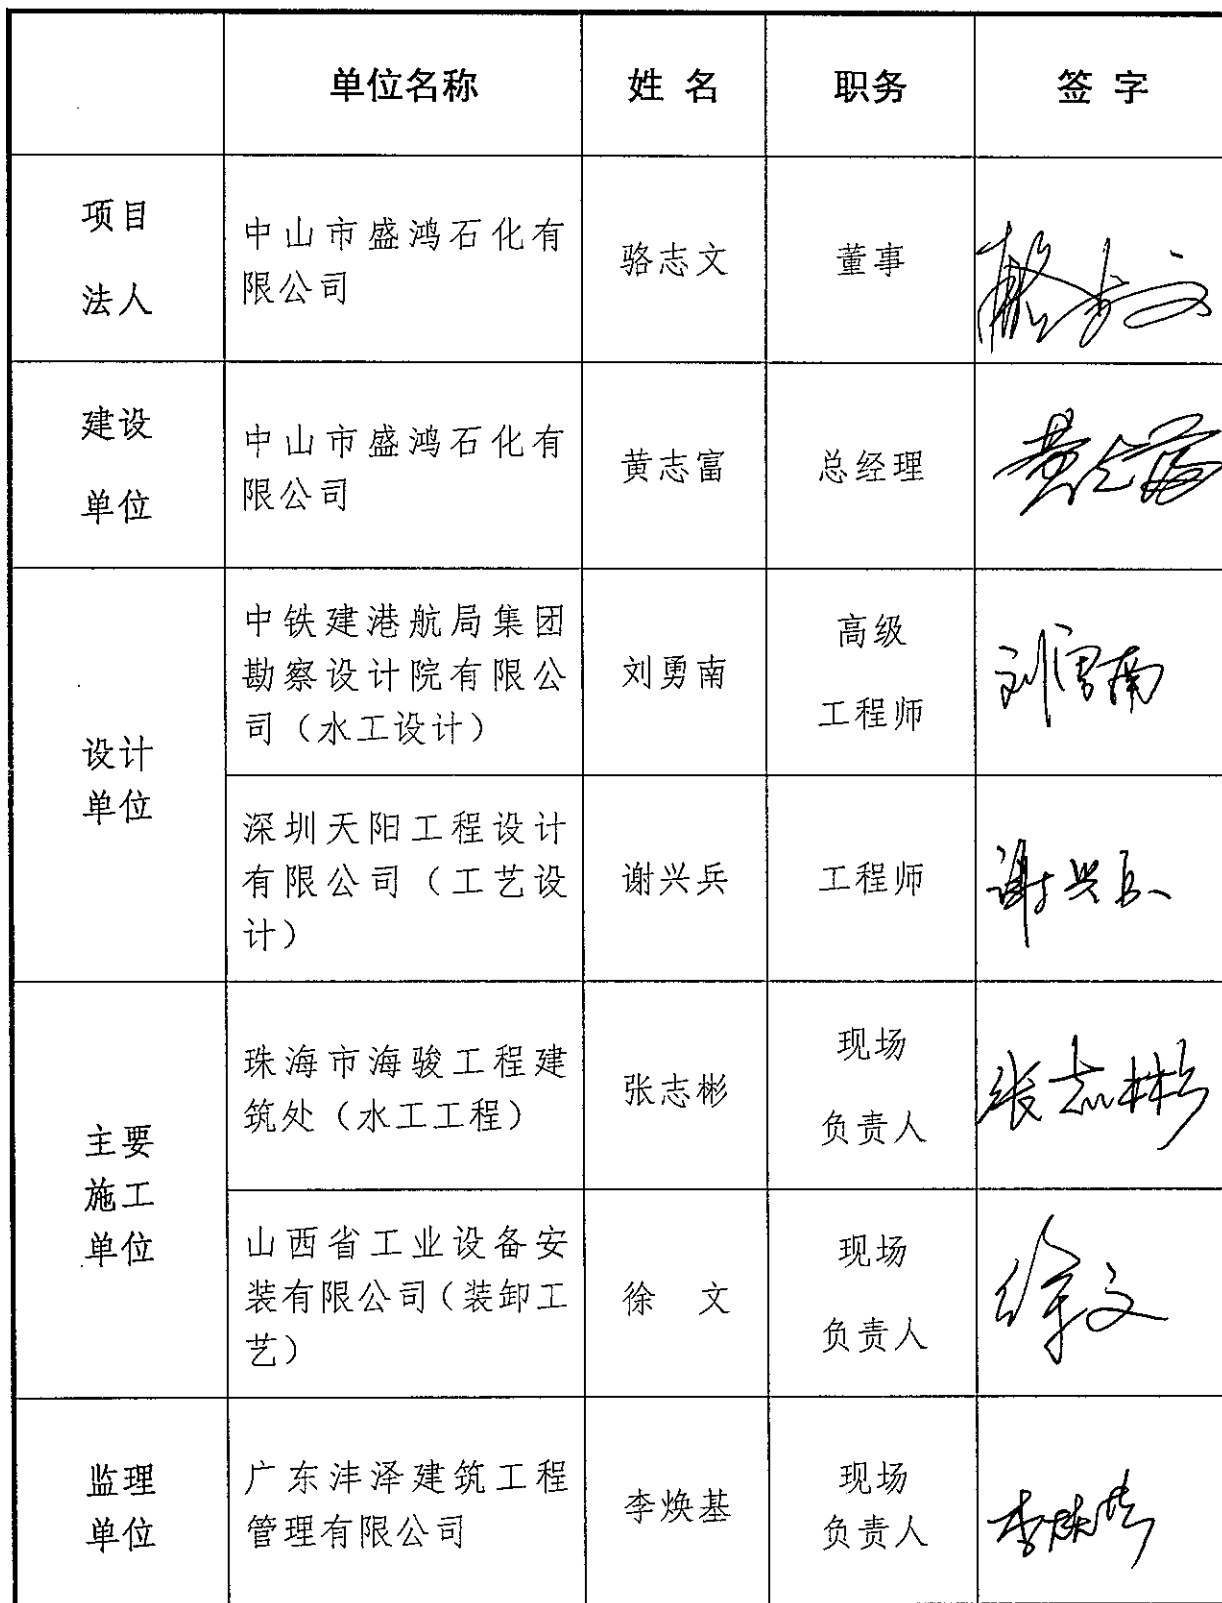 单位名称 姓 名 职务 签 字
项目
法人
中山市盛鸿石化有
限公司
骆志文
董事
骆志文
建设
单位
中山市盛鸿石化有
限公司
黄志富
总经理
黄志富
设计
单位
中铁建港航局集团
勘察设计院有限公
司（水工设计）
刘勇南
高级
工程师
刘勇南
深圳天阳工程设计
有限公司（工艺设
计）
谢兴兵
工程师
谢兴兵
主要
施工
单位
珠海市海骏工程建
筑处（水工工程）
张志彬
现场
负责人
张志彬
山西省工业设备安
装有限公司（装卸工
艺）
徐 文
现场
负责人
徐文
监理
单位
广东沣泽建筑工程
管理有限公司
李焕基
现场
负责人
李焕基